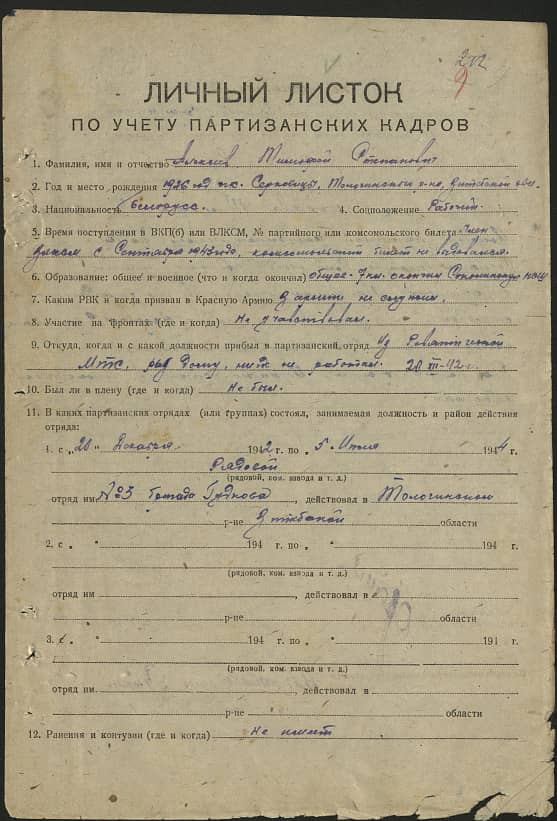 202
9
ЛИЧНЫЙ ЛИСТОК
ПО УЧЕТУ ПАРТИЗАНСКИХ КАДРОВ
1. Фамилия, имя и отчество Алексеев Тимофей Степанович
2. Год и место рождения 1926 год Толочинский р-на, Витебской обл.
3. Национальность Белорусс. 4. Соцположение Рабочий
5. Время поступления в ВКП(б) или ВЛКСМ, № партийного или комсомольского билета член
влксм с Сентября 1943 года, комсомольский билет не выдавался.
6. Образование: общее и военное (что и когда окончил) общее - 7 кл. окончил
7. Каким РВК и когда призван в Красную Армию В армии не служил.
8. Участие на фронтах (где и когда) Не участвовал.
9. Откуда, и с какой должности прибыл в партизанский отряд Из
МТС, был дома, нигде не работал. 20 XII-42 г.
10. Был ли в плену (где и когда) не был.
11. В каких партизанских отрядах (или группах) состоял, занимаемая должность и район действия
отряда:
1. с „20" Декабря 1942 г. по „ 5 " Июля 1944 г.
Рядовой
(рядовой, ком. взвода и т. д.)
отряд им №3 бригада Гудкова, действовал в Толочинском
р-не Витебской области
2. с „ " 194 г. по „ " 194 г.
(рядовой, ком. взвода и т. д.)
отряд им , действовал в
р-не области
3. с „ " 194 г. по „ " 194 г.
(рядовой, ком. взвода и т. д.)
отряд им , действовал в
р-не области
12. Ранения и контузии (где и когда) не имеет